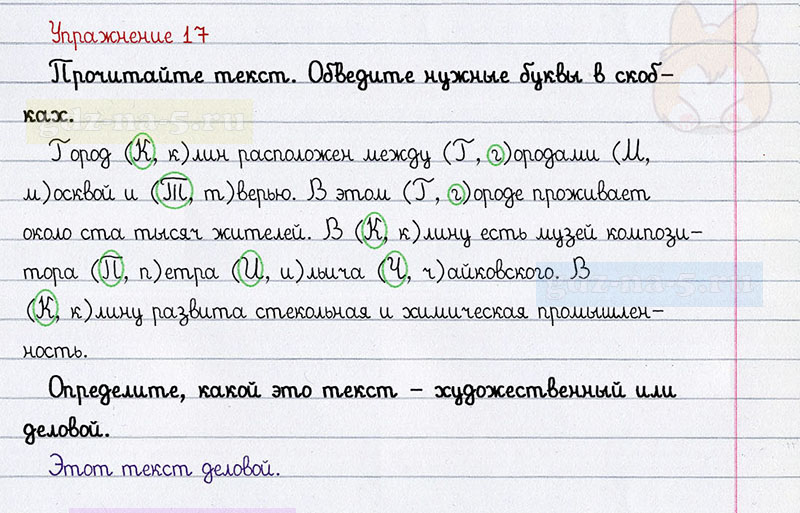 Упражнение 17
Прочитайте текст. Обведите нужные буквы в скоб-
ках.
gdz-na-5.ru
Город (К, к)лин расположен между (Г, г)ородами (М,
м)осквой и (Т, т)верью. В этом (Г, г)ороде проживает
около ста тысяч жителей. В (К, к)лину есть музей компози-
тора (П, п)етра (И, и)льича (Ч, ч)айковского. В
gdz-na-5.ru
(К, к)лину развита стекольная и химическая промышлен-
ность.
Определите, какой это текст – художественный или
деловой.
Этот текст деловой.